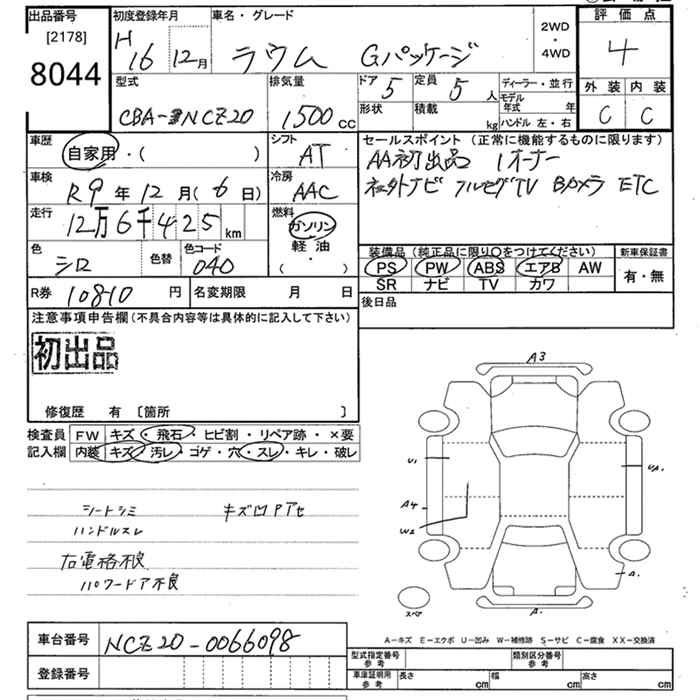 出品番号 初度登録年月 車名・グレード 評価点
[2178] 2WD ・ 4WD
8044 H16 12月 ラウム Gパッケージ 4
外装 内装
型式 排気量 ドア 5 定員 5人 ディーラー・並行 C C
CBA-NCZ20 1500cc 形状 積載 kg モデル年式 年
ハンドル 左・右
車歴 シフト セールスポイント (正常に機能するものに限ります)
自家用・( ) AT AA初出品 1オーナー
車検 冷房 社外ナビ フルセグTV Bカメラ ETC
R9年12月(6日) AAC
走行 燃料
12万6千425km ガソリン
軽油
( )
色 色替 色コード 装備品 (純正品に限り〇をつけてください) 新車保証書
シロ 040 PS PW ABS エアB AW 有・無
SR ナビ TV カワ
R券 10810円 名変期限 月 日 後日品
注意事項申告欄(不具合内容等は具体的に記入して下さい)
初出品
修復歴 有 〔箇所 〕
検査員 FW キズ・飛石・ヒビ割・リペア跡・×要
記入欄 内装 キズ・汚レ・コゲ・穴・スレ・キレ・破レ
A3
U1
A4
W2
A.
A.
スペア
シートシミ キズ凹アセ
ハンドルスレ
右電格不良
パワードア不良
A-キズ E-エクボ U-凹み W-補修跡 S-サビ C-腐食 XX-交換済
車台番号 NCZ20-0066098
登録番号
型式指定番号 参考 類別区分番号 参考
車庫証明用 参考 長さ cm 幅 cm 高さ cm